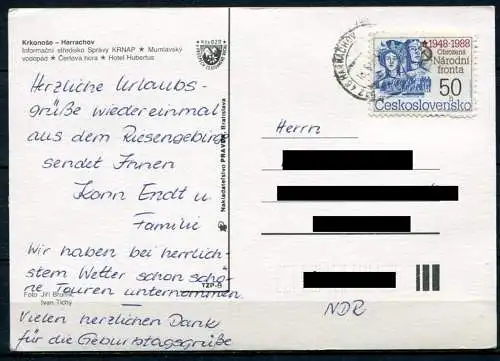 Krkonoše – Harrachov
Informační středisko Správy KRNAP ★ Mumlavský
vodopád ★ Čertova hora ★ Hotel Hubertus
Herzliche Urlaubs-
grüße wiedereinmal
aus dem Riesengebirge
sendet Ihnen
Endt u
Familie
Wir haben bei herrlich-
stem Wetter schon schö-
ne Touren unternommen.
Vielen herzlichen Dank
für die Geburtstagsgrüße
Foto Jiří
Ivan Tichý
Nakladateľstvo PRAVDA Bratislava
TZP-5
HARRACHOV
★1948-1988
Obrozená
Národní
fronta
50
Československo
Herrn
NDR